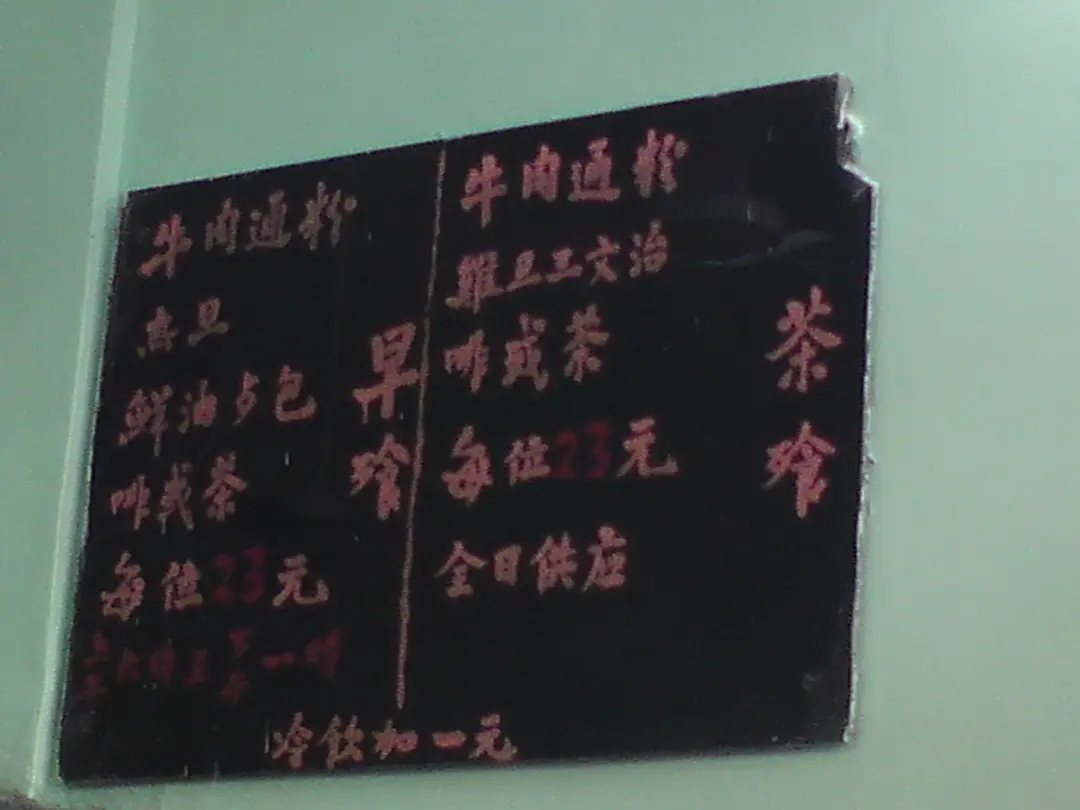 牛肉通粉
煎旦
鮮油方包
啡或茶
每位23元
上午 時至下午一時
早餐
牛肉通粉
雞旦三文治
啡或茶
每位23元
全日供应
茶餐
冷飲加一元